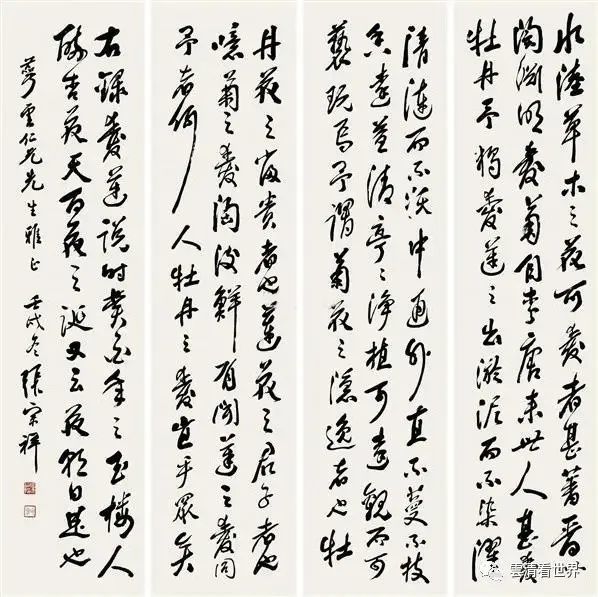 水陸草木之花可愛者甚蕃晉
陶淵明愛菊自李唐来世人甚愛
牡丹予獨愛蓮之出淤泥而不染濯
清漣而不妖中通外直不蔓不枝
香遠益清亭〻淨植可遠觀而不可
褻玩焉予謂菊花之隱逸者也牡
丹花之富貴者也蓮花之君子者也
噫菊之愛陶後鮮有聞蓮之愛同
予者何人牡丹之愛宜乎眾矣
右録愛蓮説時之玉樓人
醉杏花天百花之誕又云花朝日是也
萼雲仁兄先生雅正 壬戌冬 張宗祥
雲猜看世界